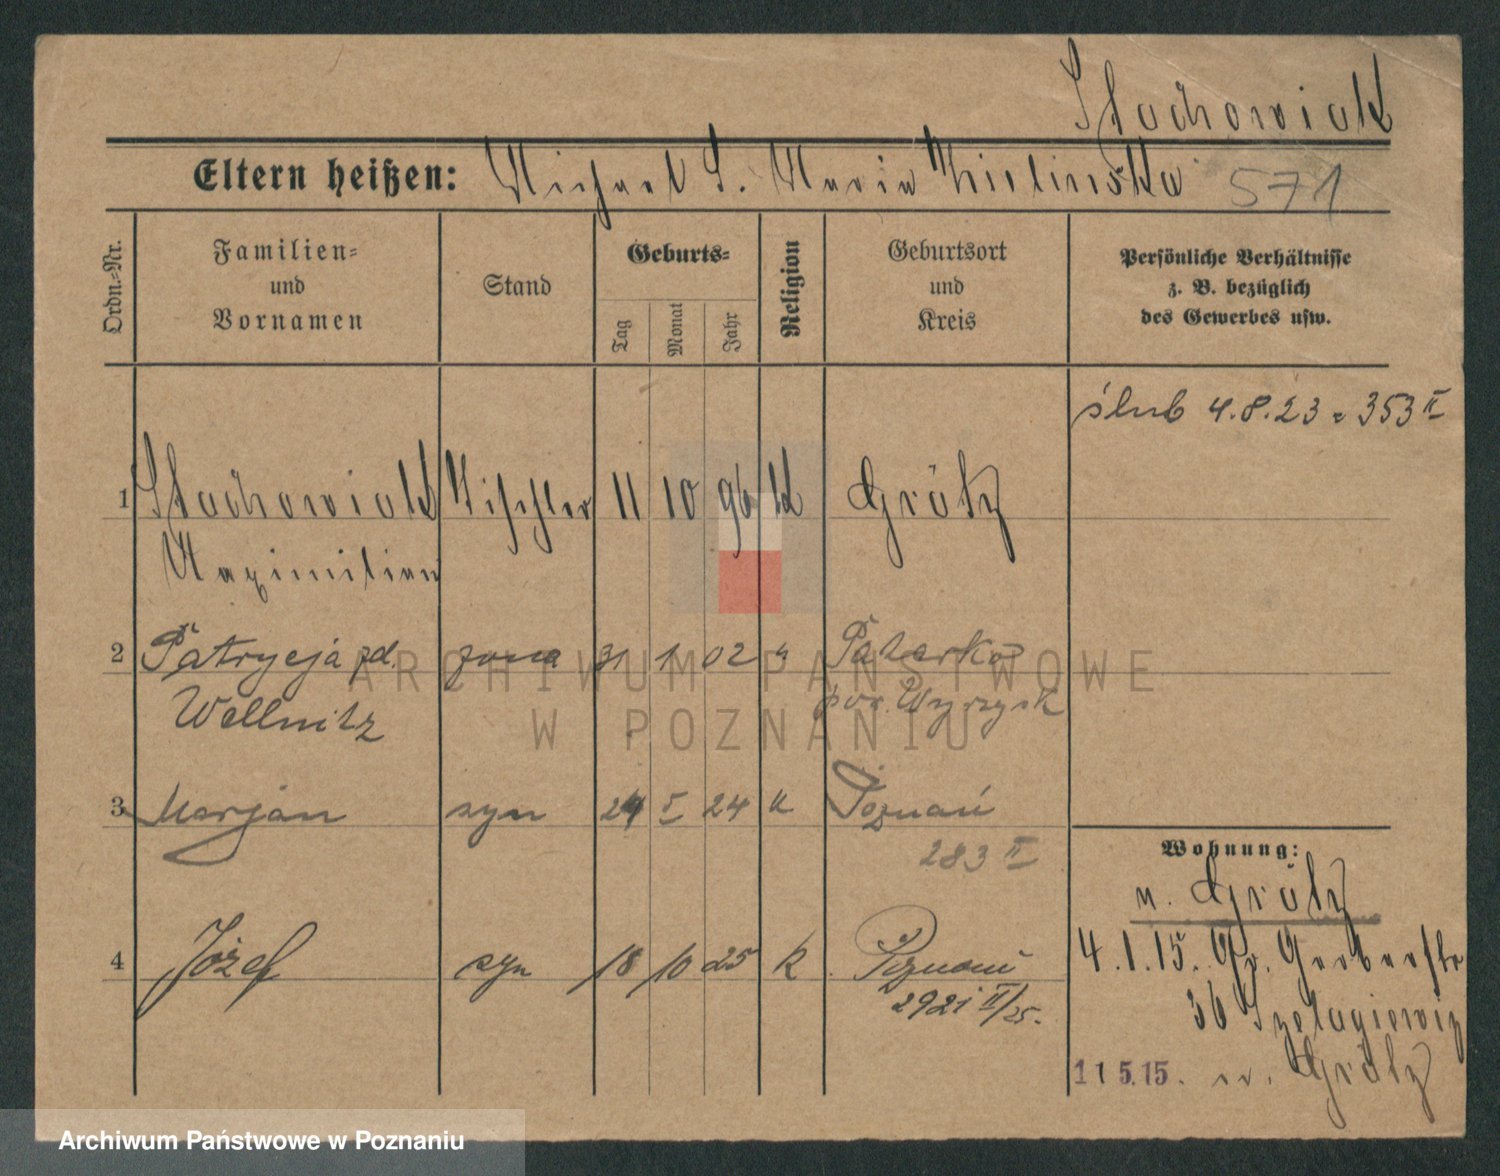 Stachowiak
Eltern heißen: Michael S. Maria Zielinska 571
Ordn.-Nr.
Familien- und Vornamen
Stand
Geburts-
Tag Monat Jahr
Religion
Geburtsort und Kreis
Persönliche Verhältnisse
z. B. bezüglich
des Gewerbes usw.
ślub 4.8.23 353 II
1 Stachowiak Tischler 11 10 96 k Grätz
Maximilian
2 Patrycja zd. żona 31 1 02 "
Wellnitz pow. Wyrzysk
3 Marjan syn 24 V 24 k Poznań
283 II
Wohnung:
n. Grätz
4 Józef syn 18 10 25 k Poznań
2921 II/25.
4.1.15. Gr. Gerberstr
36 Szelagiewicz
11 5.15. n. Grätz
ARCHIWUM PAŃSTWOWE
W POZNANIU
Archiwum Państwowe w Poznaniu